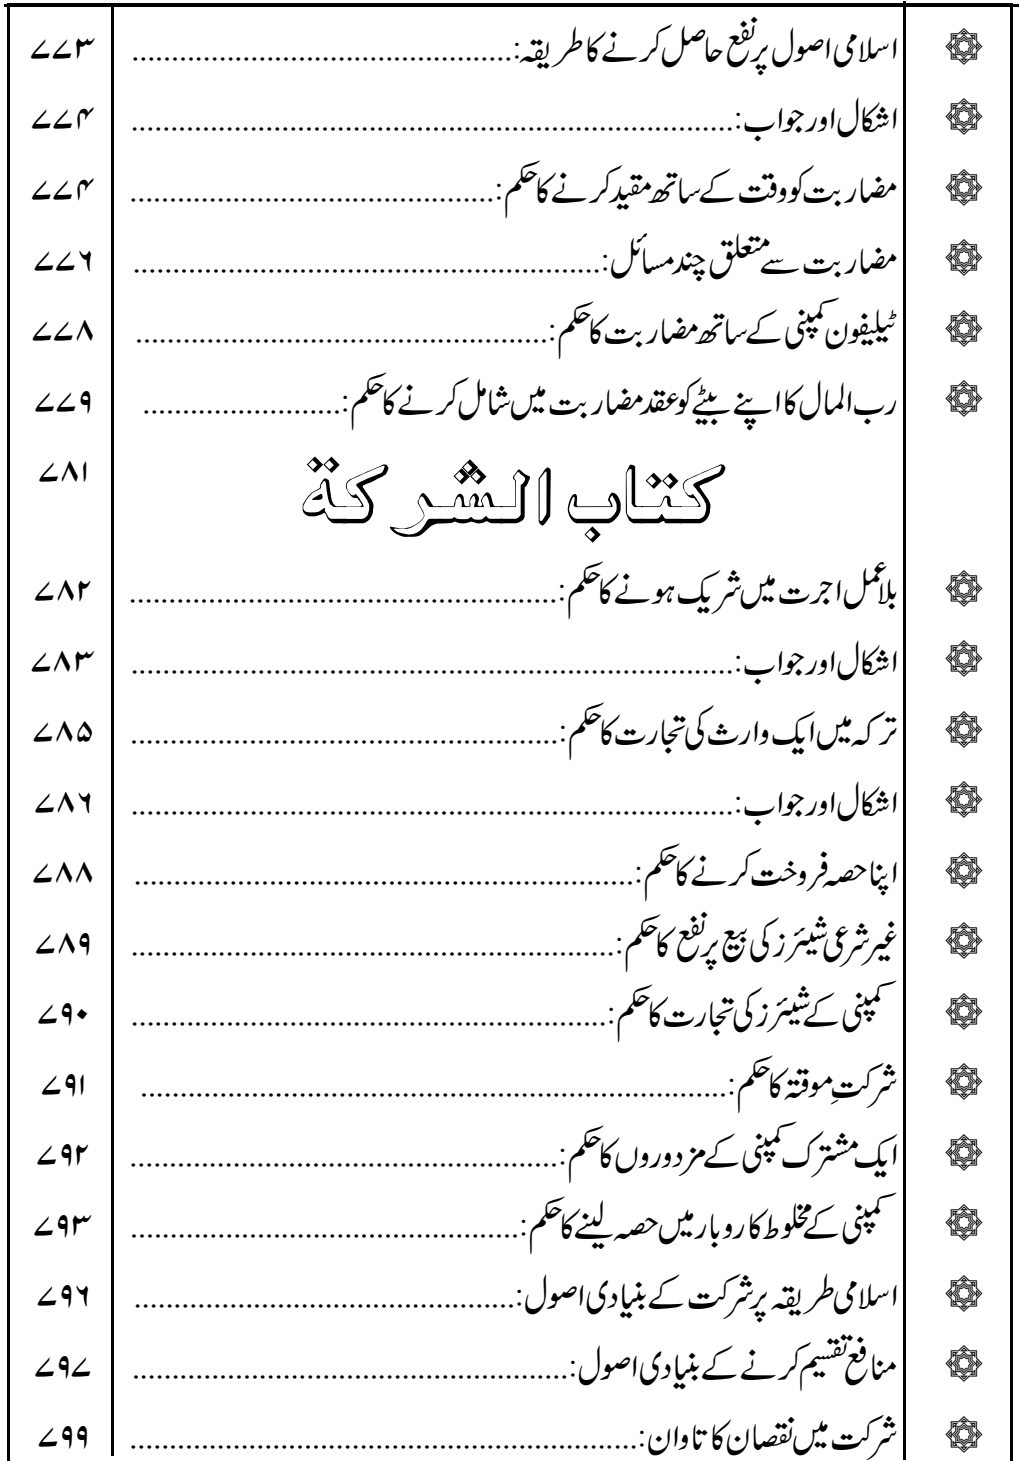 اسلامی اصول پر نفع حاصل کرنے کا طریقہ: ۷۷۳
اشکال اور جواب: ۷۷۴
مضاربت کو وقت کے ساتھ مقید کرنے کا حکم: ۷۷۴
مضاربت سے متعلق چند مسائل: ۷۷۶
ٹیلیفون کمپنی کے ساتھ مضاربت کا حکم: ۷۷۸
رب المال کا اپنے بیٹے کو عقد مضاربت میں شامل کرنے کا حکم: ۷۷۹
کتاب الشرکة ۷۸۱
بلا عمل اجرت میں شریک ہونے کا حکم: ۷۸۲
اشکال اور جواب: ۷۸۳
ترکہ میں ایک وارث کی تجارت کا حکم: ۷۸۵
اشکال اور جواب: ۷۸۶
اپنا حصہ فروخت کرنے کا حکم: ۷۸۸
غیر شرعی شیئرز کی بیع پر نفع کا حکم: ۷۸۹
کمپنی کے شیئرز کی تجارت کا حکم: ۷۹۰
شرکتِ موقتہ کا حکم: ۷۹۱
ایک مشترک کمپنی کے مزدوروں کا حکم: ۷۹۲
کمپنی کے مخلوط کاروبار میں حصہ لینے کا حکم: ۷۹۳
اسلامی طریقہ پر شرکت کے بنیادی اصول: ۷۹۶
منافع تقسیم کرنے کے بنیادی اصول: ۷۹۷
شرکت میں نقصان کا تاوان: ۷۹۹